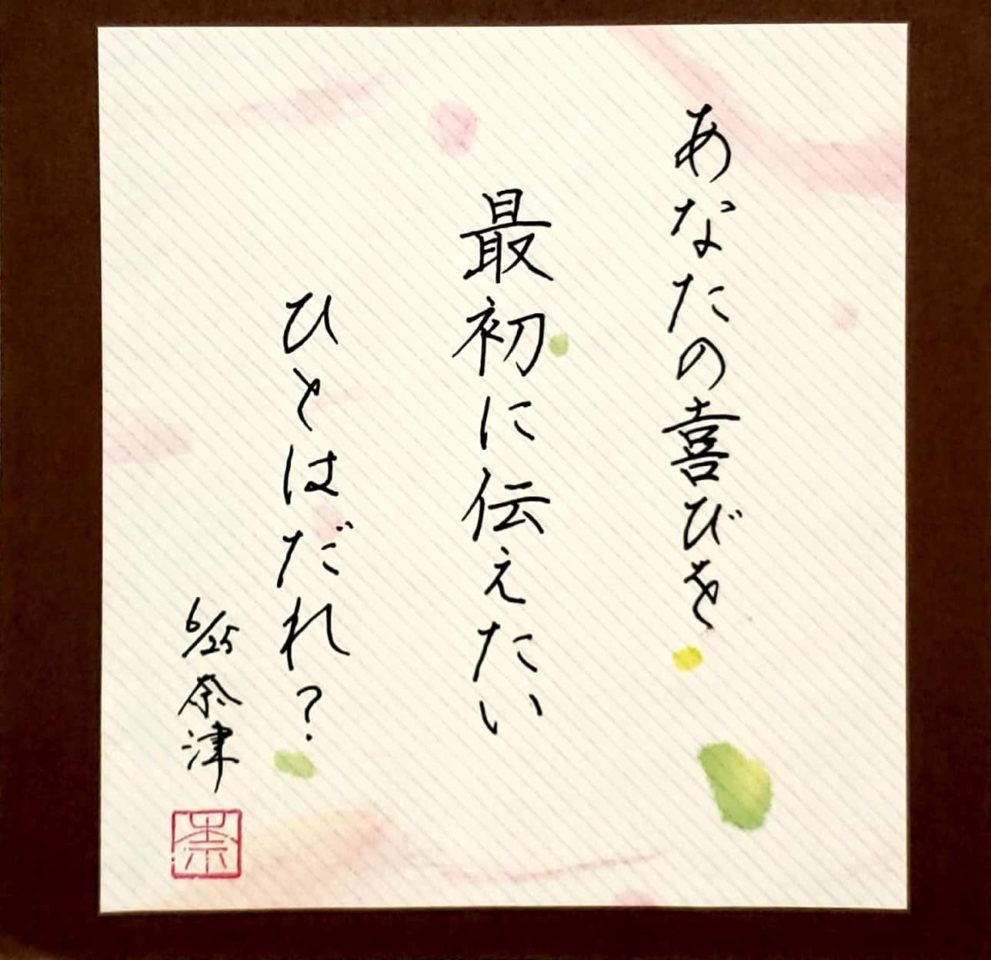 あなたの喜びを
最初に伝えたい
ひとはだれ?
6/25 奈津
奈